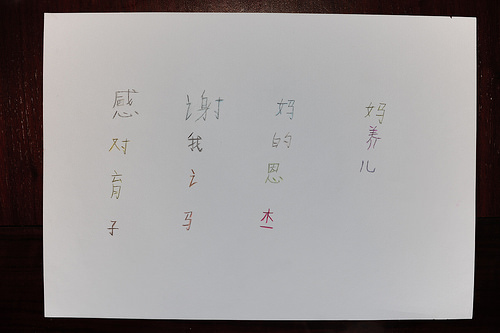 感谢妈妈
对我的养
育之恩儿
子马杰